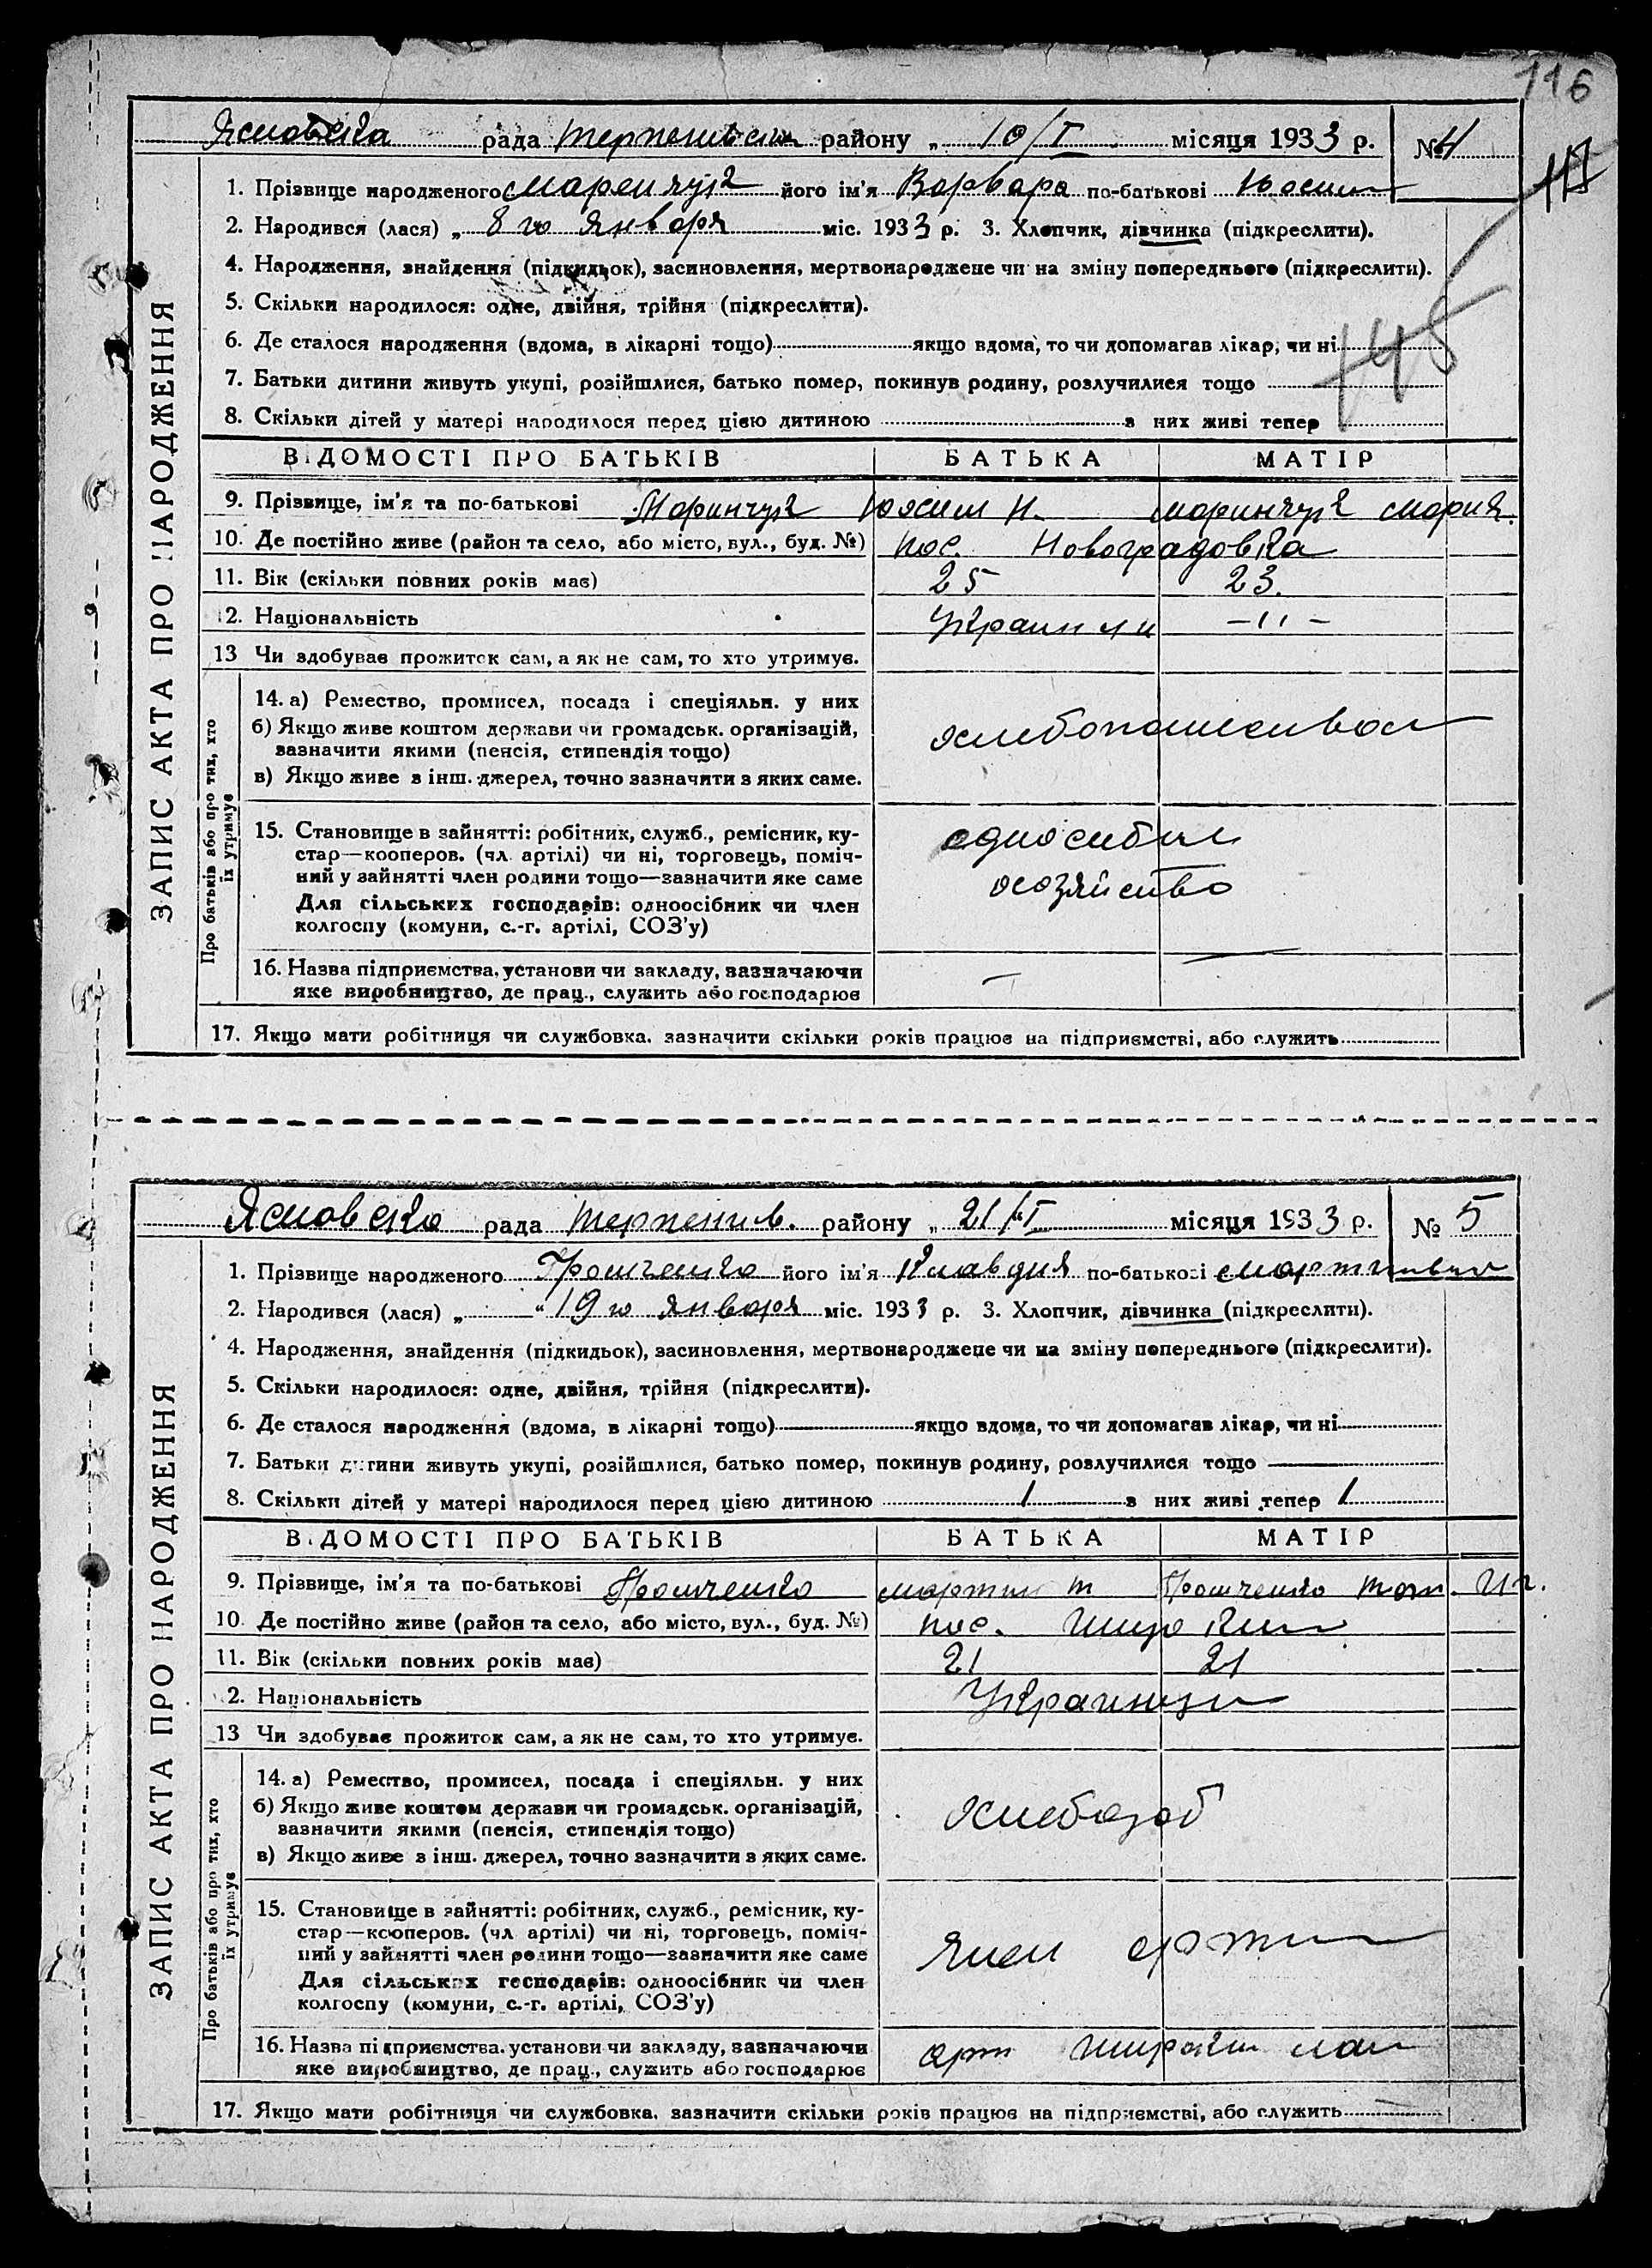 116
117
145
рада району „ 10/I місяця 1933 р. № 4
ЗАПИС АКТА ПРО НАРОДЖЕННЯ
1. Прізвище народженого його ім'я Варвара по-батькові
2. Народився (лася) „ 8 го января міс. 1933 р. 3. Хлопчик, дівчинка (підкреслити).
4. Народження, знайдення (підкидьок), засиновлення, мертвонароджене чи на зміну попереднього (підкреслити).
5. Скільки народилося: одне, двійня, трійня (підкреслити).
6. Де сталося народження (вдома, в лікарні тощо) якщо вдома, то чи допомагав лікар, чи ні
7. Батьки дитини живуть укупі, розійшлися, батько помер, покинув родину, розлучилися тощо
8. Скільки дітей у матері народилося перед цією дитиною з них живі тепер
ВІДОМОСТІ ПРО БАТЬКІВ БАТЬКА МАТІР
9. Прізвище, ім'я та по-батькові Маринчук Н. Маринчук Мария
10. Де постійно живе (район та село, або місто, вул., буд. №) пос. Новоградовка
11. Вік (скільки повних років має) 25 23.
12. Національність — 〃 —
13 Чи здобуває прожиток сам, а як не сам, то хто утримує.
Про батьків або про тих, хто їх утримує
14. а) Ремество, промисел, посада і спеціяльн. у них
б) Якщо живе коштом держави чи громадськ. організацій,
зазначити якими (пенсія, стипендія тощо)
в) Якщо живе з інш. джерел, точно зазначити з яких саме.
15. Становище в зайнятті: робітник, служб., ремісник, ку-
стар—кооперов. (чл. артілі) чи ні, торговець, поміч-
ний у зайнятті член родини тощо—зазначити яке саме
Для сільських господарів: одноосібник чи член
колгоспу (комуни, с.-г. артілі, СОЗ'у)
хозяйство
16. Назва підприємства, установи чи закладу, зазначаючи — —
яке виробництво, де прац., служить або господарює
17. Якщо мати робітниця чи службовка, зазначити скільки років працює на підприємстві, або служить
рада району „ 21/I місяця 1933 р. № 5
ЗАПИС АКТА ПРО НАРОДЖЕННЯ
1. Прізвище народженого його ім'я Клавдия по-батькові
2. Народився (лася) „ 19 го января міс. 1933 р. 3. Хлопчик, дівчинка (підкреслити).
4. Народження, знайдення (підкидьок), засиновлення, мертвонароджене чи на зміну попереднього (підкреслити).
5. Скільки народилося: одне, двійня, трійня (підкреслити).
6. Де сталося народження (вдома, в лікарні тощо) якщо вдома, то чи допомагав лікар, чи ні
7. Батьки дитини живуть укупі, розійшлися, батько помер, покинув родину, розлучилися тощо
8. Скільки дітей у матері народилося перед цією дитиною 1 з них живі тепер 1
ВІДОМОСТІ ПРО БАТЬКІВ БАТЬКА МАТІР
9. Прізвище, ім'я та по-батькові Мартин Т
10 Де постійно живе (район та село, або місто, вул., буд. №) пос.
11. Вік (скільки повних років має) 21 21
12. Національність
13 Чи здобуває прожиток сам, а як не сам, то хто утримує.
Про батьків або про тих, хто їх утримує
14. а) Ремество, промисел, посада і спеціяльн. у них
б) Якщо живе коштом держави чи громадськ. організацій,
зазначити якими (пенсія, стипендія тощо)
в) Якщо живе з інш. джерел, точно зазначити з яких саме.
хлебороб
15. Становище в зайнятті: робітник, служб., ремісник, ку-
стар—кооперов. (чл артілі) чи ні, торговець, поміч-
ний у зайнятті член родини тощо—зазначити яке саме
Для сільських господарів: одноосібник чи член
колгоспу (комуни, с.-г. артілі, СОЗ'у)
член
16. Назва підприємства, установи чи закладу, зазначаючи арт
яке виробництво, де прац., служить або господарює
17. Якщо мати робітниця чи службовка, зазначити скільки років працює на підприємстві, або служить